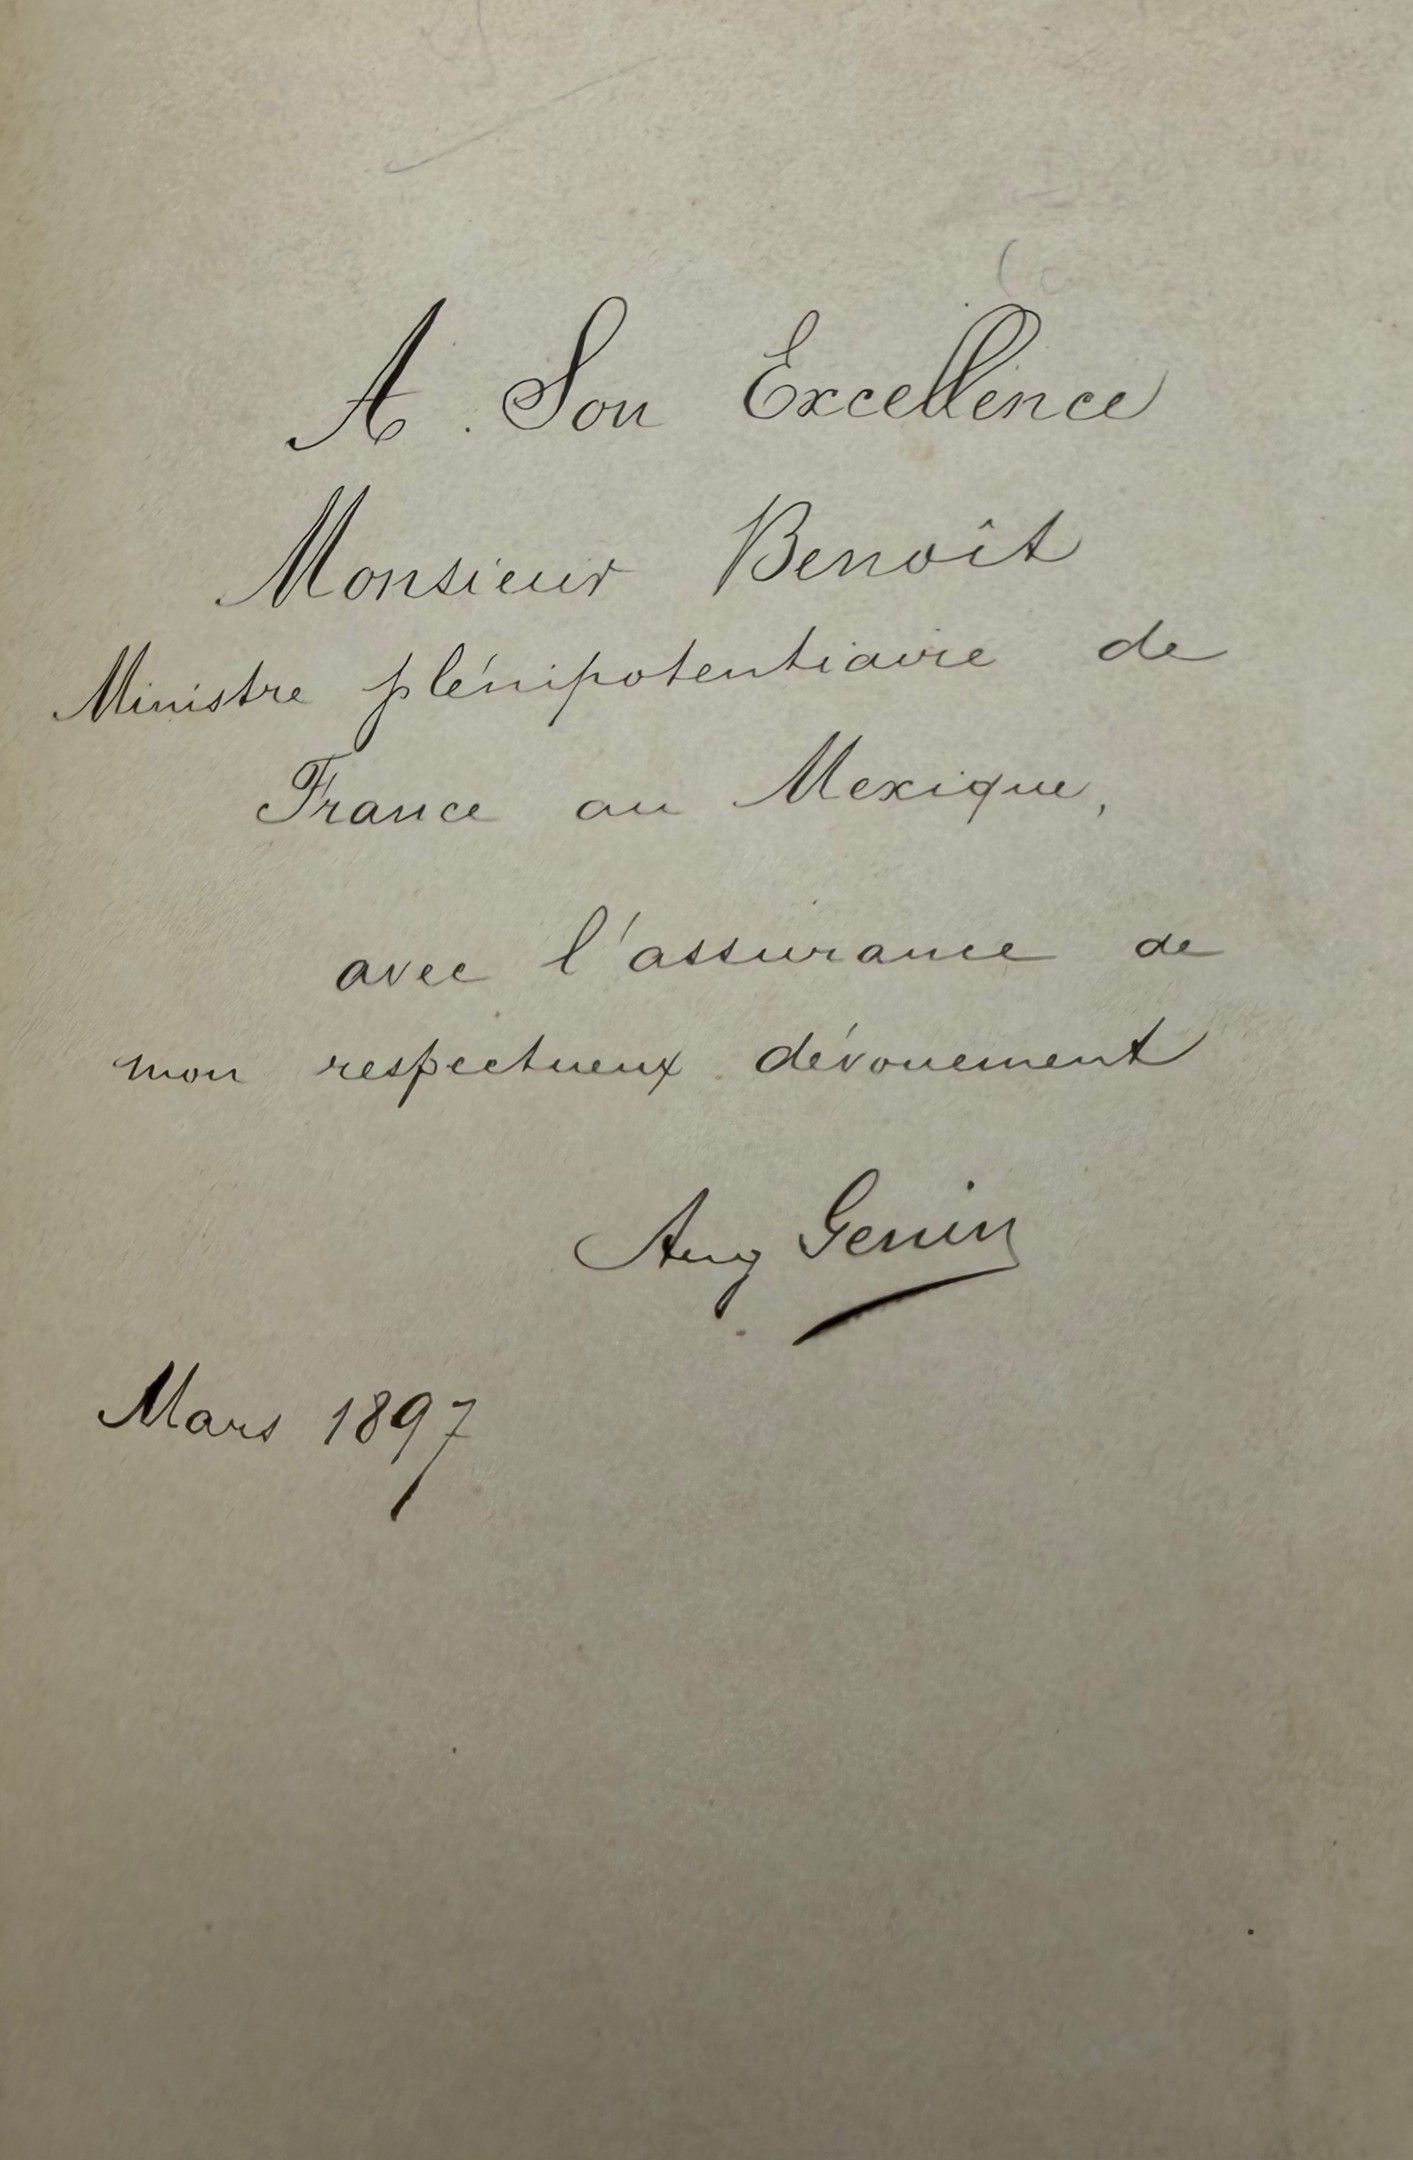 A Son Excellence
Monsieur Benoît
Ministre plénipotentiaire de
France au Mexique,
avec l'assurance de
mon respectueux dévouement
Aug Genin
Mars 1897